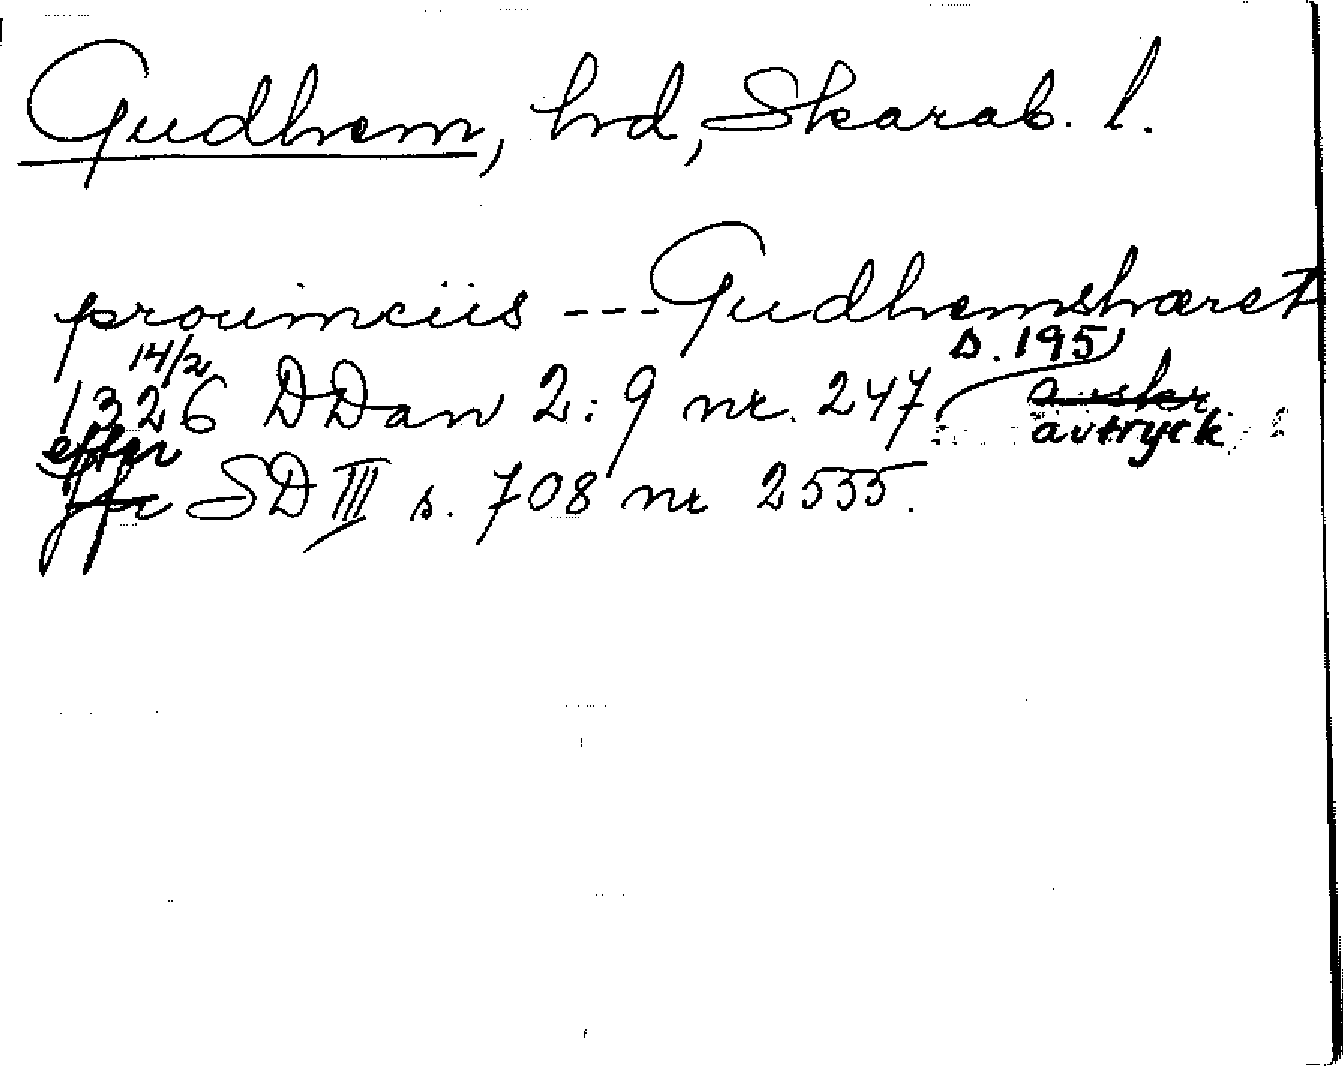 Gudhem, hrd, Skarab. l.
prouinciis --- Gudhemshæret
14/2 s. 195
1326 DDan 2:9 nr. 247 avskr
avtryck
efter
jfr SD III s. 708 nr 2535.